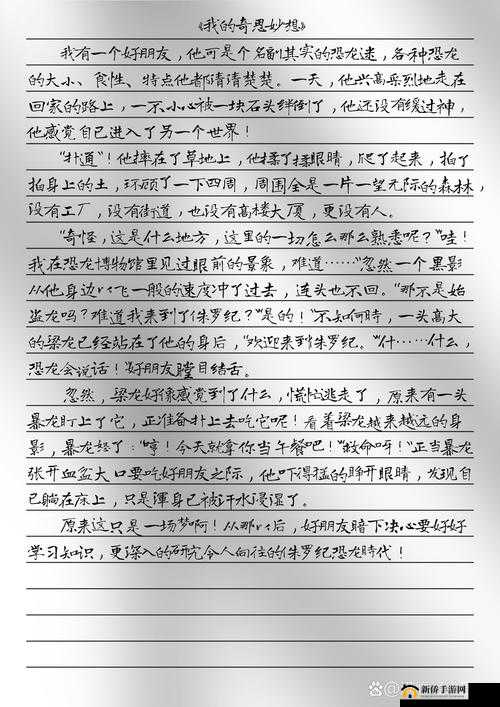 《我的奇思妙想》
我有一个好朋友，他可是个名副其实的恐龙迷，各种恐龙
的大小、食性、特点他都清清楚楚。一天，他兴高采烈地走在
回家的路上，一不小心被一块石头绊倒了，他还没有缓过神，
他感觉自己进入了另一个世界！
“扑通”！他摔在了草地上，他揉了揉眼睛，爬了起来，拍了
拍身上的土，环顾了一下四周，周围全是一片一望无际的森林，
没有工厂，没有街道，也没有高楼大厦，更没有人。
“奇怪，这是什么地方，这里的一切怎么那么熟悉呢？”哇！
我在恐龙博物馆里见过眼前的景象，难道……“忽然一个黑影
从他身边以飞一般的速度冲了过去，连头也不回。“那不是始
盗龙吗？难道我来到了侏罗纪？”“是的！”不知何時，一头高大
的梁龙已经站在了他的身后，“欢迎来到侏罗纪。”“什……什么，
恐龙会说话！”好朋友瞠目结舌。
忽然，梁龙好像感觉到了什么，慌忙逃走了，原来有一头
暴龙盯上了它，正准备扑上去吃它呢！看着梁龙越来越远的身
影，暴龙怒了：“哼！今天就拿你当午餐吧！”“救命呀！”正当暴龙
张开血盆大口要吃好朋友之际，他吓得猛的睁开眼睛，发现自
己躺在床上，只是渾身已被汗水浸湿了。
原来这只是一场梦啊！从那以后，好朋友暗下决心要好好
学习知识，更深入的研究令人向往的侏罗纪恐龙時代！
新侨手游网